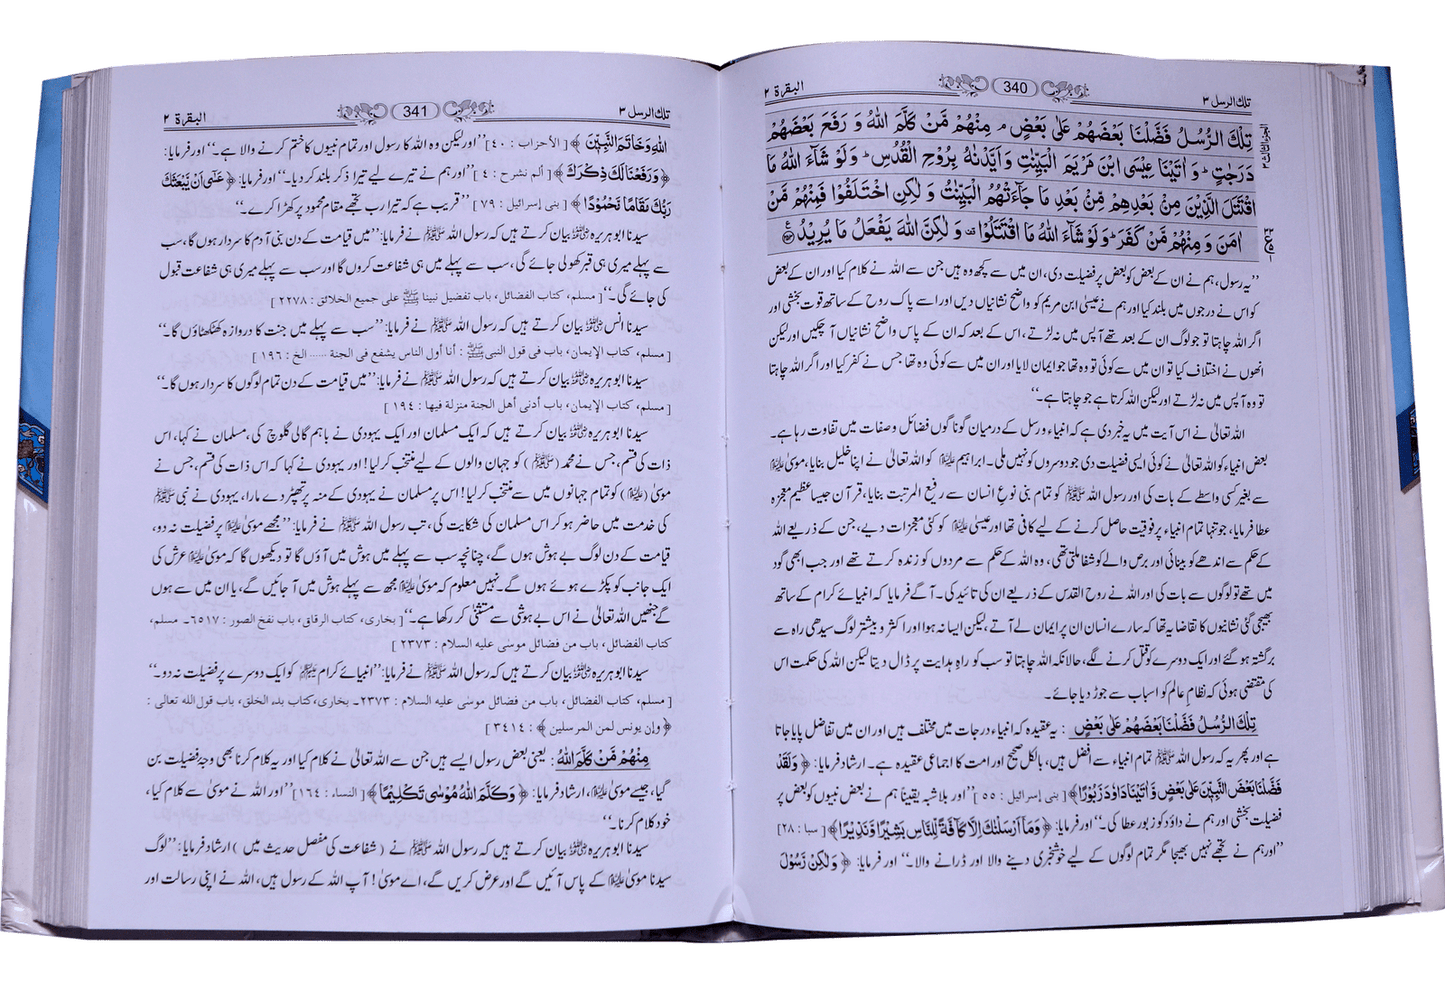 تلك الرسل ٣ 340 البقرة ٢
تِلْكَ الرُّسُلُ فَضَّلْنَا بَعْضَهُمْ عَلٰى بَعْضٍ ۘ مِنْهُمْ مَّنْ كَلَّمَ اللّٰهُ وَ رَفَعَ بَعْضَهُمْ
دَرَجٰتٍ ؕ وَ اٰتَيْنَا عِيْسَى ابْنَ مَرْيَمَ الْبَيِّنٰتِ وَ اَيَّدْنٰهُ بِرُوْحِ الْقُدُسِ ؕ وَ لَوْ شَآءَ اللّٰهُ مَا
اقْتَتَلَ الَّذِيْنَ مِنْۢ بَعْدِهِمْ مِّنْۢ بَعْدِ مَا جَآءَتْهُمُ الْبَيِّنٰتُ وَ لٰكِنِ اخْتَلَفُوْا فَمِنْهُمْ مَّنْ
اٰمَنَ وَ مِنْهُمْ مَّنْ كَفَرَ ؕ وَ لَوْ شَآءَ اللّٰهُ مَا اقْتَتَلُوْا ۟ وَ لٰكِنَّ اللّٰهَ يَفْعَلُ مَا يُرِيْدُ
”یہ رسول، ہم نے ان کے بعض کو بعض پر فضیلت دی، ان میں سے کچھ وہ ہیں جن سے اللہ نے کلام کیا اور ان کے بعض
کو اس نے درجوں میں بلند کیا اور ہم نے عیسیٰ ابن مریم کو واضح نشانیاں دیں اور اسے پاک روح کے ساتھ قوت بخشی اور
اگر اللہ چاہتا تو جو لوگ ان کے بعد تھے آپس میں نہ لڑتے، اس کے بعد کہ ان کے پاس واضح نشانیاں آ چکیں اور لیکن
انھوں نے اختلاف کیا تو ان میں سے کوئی تو وہ تھا جو ایمان لایا اور ان میں سے کوئی وہ تھا جس نے کفر کیا اور اگر اللہ چاہتا
تو وہ آپس میں نہ لڑتے اور لیکن اللہ کرتا ہے جو چاہتا ہے۔“
اللہ تعالیٰ نے اس آیت میں یہ خبر دی ہے کہ انبیاء و رسل کے درمیان گوناگوں فضائل و صفات میں تفاوت رہا ہے۔
بعض انبیاء کو اللہ تعالیٰ نے کوئی ایسی فضیلت دی جو دوسروں کو نہیں ملی۔ ابراہیم علیہ السلام کو اللہ تعالیٰ نے اپنا خلیل بنایا، موسیٰ علیہ السلام
سے بغیر کسی واسطے کے بات کی اور رسول اللہ ﷺ کو تمام بنی نوعِ انسان سے رفیع المرتبت بنایا، قرآن جیسا عظیم معجزہ
عطا فرمایا، جو تنہا تمام انبیاء پر فوقیت حاصل کرنے کے لیے کافی تھا اور عیسیٰ علیہ السلام کو کئی معجزات دیے، جن کے ذریعے اللہ
کے حکم سے اندھے کو بینائی اور برص والے کو شفا ملتی تھی، وہ اللہ کے حکم سے مردوں کو زندہ کرتے تھے اور جب ابھی گود
میں تھے تو لوگوں سے بات کی اور اللہ نے روح القدس کے ذریعے ان کی تائید کی۔ آگے فرمایا کہ انبیائے کرام کے ساتھ
بھیجی گئی نشانیوں کا تقاضا یہ تھا کہ سارے انسان ان پر ایمان لے آتے، لیکن ایسا نہ ہوا اور اکثر و بیشتر لوگ سیدھی راہ سے
برگشتہ ہو گئے اور ایک دوسرے کو قتل کرنے لگے، حالانکہ اللہ چاہتا تو سب کو راہِ ہدایت پر ڈال دیتا لیکن اللہ کی حکمت اس
کی مقتضی ہوئی کہ نظامِ عالم کو اسباب سے جوڑ دیا جائے۔
تِلْكَ الرُّسُلُ فَضَّلْنَا بَعْضَهُمْ عَلٰى بَعْضٍ : یہ عقیدہ کہ انبیاء درجات میں مختلف ہیں اور ان میں تفاضل پایا جاتا
ہے اور پھر یہ کہ رسول اللہ ﷺ تمام انبیاء سے افضل ہیں، بالکل صحیح اور امت کا اجماعی عقیدہ ہے۔ ارشاد فرمایا: ﴿ وَ لَقَدْ
فَضَّلْنَا بَعْضَ النَّبِيّٖنَ عَلٰى بَعْضٍ وَّ اٰتَيْنَا دَاوٗدَ زَبُوْرًا ﴾ [ بنی إسرائيل : ٥٥ ] ”اور بلاشبہ یقیناً ہم نے بعض نبیوں کو بعض پر
فضیلت بخشی اور ہم نے داؤد کو زبور عطا کی۔“ اور فرمایا: ﴿ وَ مَاۤ اَرْسَلْنٰكَ اِلَّا كَآفَّةً لِّلنَّاسِ بَشِيْرًا وَّ نَذِيْرًا ﴾ [ سبا : ٢٨ ]
”اور ہم نے تجھے نہیں بھیجا مگر تمام لوگوں کے لیے خوشخبری دینے والا اور ڈرانے والا۔“ اور فرمایا: ﴿ وَ لٰكِنْ رَّسُوْلَ
تلك الرسل ٣ 341 البقرة ٢
اللّٰهِ وَ خَاتَمَ النَّبِيّٖنَ ﴾ [ الأحزاب : ٤٠ ] ”اور لیکن وہ اللہ کا رسول اور تمام نبیوں کا ختم کرنے والا ہے۔“ اور فرمایا:
﴿ وَ رَفَعْنَا لَكَ ذِكْرَكَ ﴾ [ ألم نشرح : ٤ ] ”اور ہم نے تیرے لیے تیرا ذکر بلند کر دیا۔“ اور فرمایا: ﴿ عَسٰۤى اَنْ يَّبْعَثَكَ
رَبُّكَ مَقَامًا مَّحْمُوْدًا ﴾ [ بنی إسرائيل : ٧٩ ] ”قریب ہے کہ تیرا رب تجھے مقام محمود پر کھڑا کرے۔“
سیدنا ابو ہریرہ رضی اللہ عنہ بیان کرتے ہیں کہ رسول اللہ ﷺ نے فرمایا: ”میں قیامت کے دن بنی آدم کا سردار ہوں گا، سب
سے پہلے میری ہی قبر کھولی جائے گی، سب سے پہلے میں ہی شفاعت کروں گا اور سب سے پہلے میری ہی شفاعت قبول
کی جائے گی۔“ [ مسلم، كتاب الفضائل، باب تفضيل نبينا ﷺ على جميع الخلائق : ٢٢٧٨ ]
سیدنا انس رضی اللہ عنہ بیان کرتے ہیں کہ رسول اللہ ﷺ نے فرمایا: ”سب سے پہلے میں جنت کا دروازہ کھٹکھٹاؤں گا۔“
[ مسلم، كتاب الإيمان، باب فى قول النبى ﷺ : أنا أول الناس يشفع فى الجنة ...... الخ : ١٩٦ ]
سیدنا ابو ہریرہ رضی اللہ عنہ بیان کرتے ہیں کہ رسول اللہ ﷺ نے فرمایا: ”میں قیامت کے دن تمام لوگوں کا سردار ہوں گا۔“
[ مسلم، كتاب الإيمان، باب أدنى أهل الجنة منزلة فيها : ١٩٤ ]
سیدنا ابو ہریرہ رضی اللہ عنہ بیان کرتے ہیں کہ ایک مسلمان اور ایک یہودی نے باہم گالی گلوچ کی، مسلمان نے کہا، اس
ذات کی قسم، جس نے محمد (ﷺ) کو جہان والوں کے لیے منتخب کر لیا! اور یہودی نے کہا کہ اس ذات کی قسم، جس نے
موسیٰ (علیہ السلام) کو تمام جہانوں میں سے منتخب کر لیا! اس پر مسلمان نے یہودی کے منہ پر تھپڑ دے مارا، یہودی نے نبی ﷺ
کی خدمت میں حاضر ہو کر اس مسلمان کی شکایت کی، تب رسول اللہ ﷺ نے فرمایا: ”مجھے موسیٰ علیہ السلام پر فضیلت نہ دو،
قیامت کے دن لوگ بے ہوش ہوں گے، چنانچہ سب سے پہلے میں ہوش میں آؤں گا تو دیکھوں گا کہ موسیٰ علیہ السلام عرش کی
ایک جانب کو پکڑے ہوئے ہوں گے۔ نہیں معلوم کہ موسیٰ علیہ السلام مجھ سے پہلے ہوش میں آ جائیں گے، یا ان میں سے ہوں
گے جنھیں اللہ تعالیٰ نے اس بے ہوشی سے مستثنیٰ کر رکھا ہے۔“ [ بخارى، كتاب الرقاق، باب نفخ الصور : ٦٥١٧۔ مسلم،
كتاب الفضائل، باب من فضائل موسى عليه السلام : ٢٣٧٣ ]
سیدنا ابو ہریرہ رضی اللہ عنہ بیان کرتے ہیں کہ رسول اللہ ﷺ نے فرمایا: ”انبیائے کرام علیہم السلام کو ایک دوسرے پر فضیلت نہ دو۔“
[ مسلم، كتاب الفضائل، باب من فضائل موسى عليه السلام : ٢٣٧٣۔ بخارى، كتاب بدء الخلق، باب قول الله تعالى :
﴿ وإن يونس لمن المرسلين ﴾ : ٣٤١٤ ]
مِنْهُمْ مَّنْ كَلَّمَ اللّٰهُ : یعنی بعض رسول ایسے ہیں جن سے اللہ تعالیٰ نے کلام کیا اور یہ کلام کرنا بھی وجۂ فضیلت بن
گیا، جیسے موسیٰ علیہ السلام، ارشاد فرمایا: ﴿ وَ كَلَّمَ اللّٰهُ مُوْسٰى تَكْلِيْمًا ﴾ [ النساء : ١٦٤ ] ”اور اللہ نے موسیٰ سے کلام کیا،
خود کلام کرنا۔“
سیدنا ابو ہریرہ رضی اللہ عنہ بیان کرتے ہیں کہ رسول اللہ ﷺ نے ( شفاعت کی مفصل حدیث میں ) ارشاد فرمایا: ”لوگ
سیدنا موسیٰ علیہ السلام کے پاس آئیں گے اور عرض کریں گے، اے موسیٰ ! آپ اللہ کے رسول ہیں، اللہ نے اپنی رسالت اور